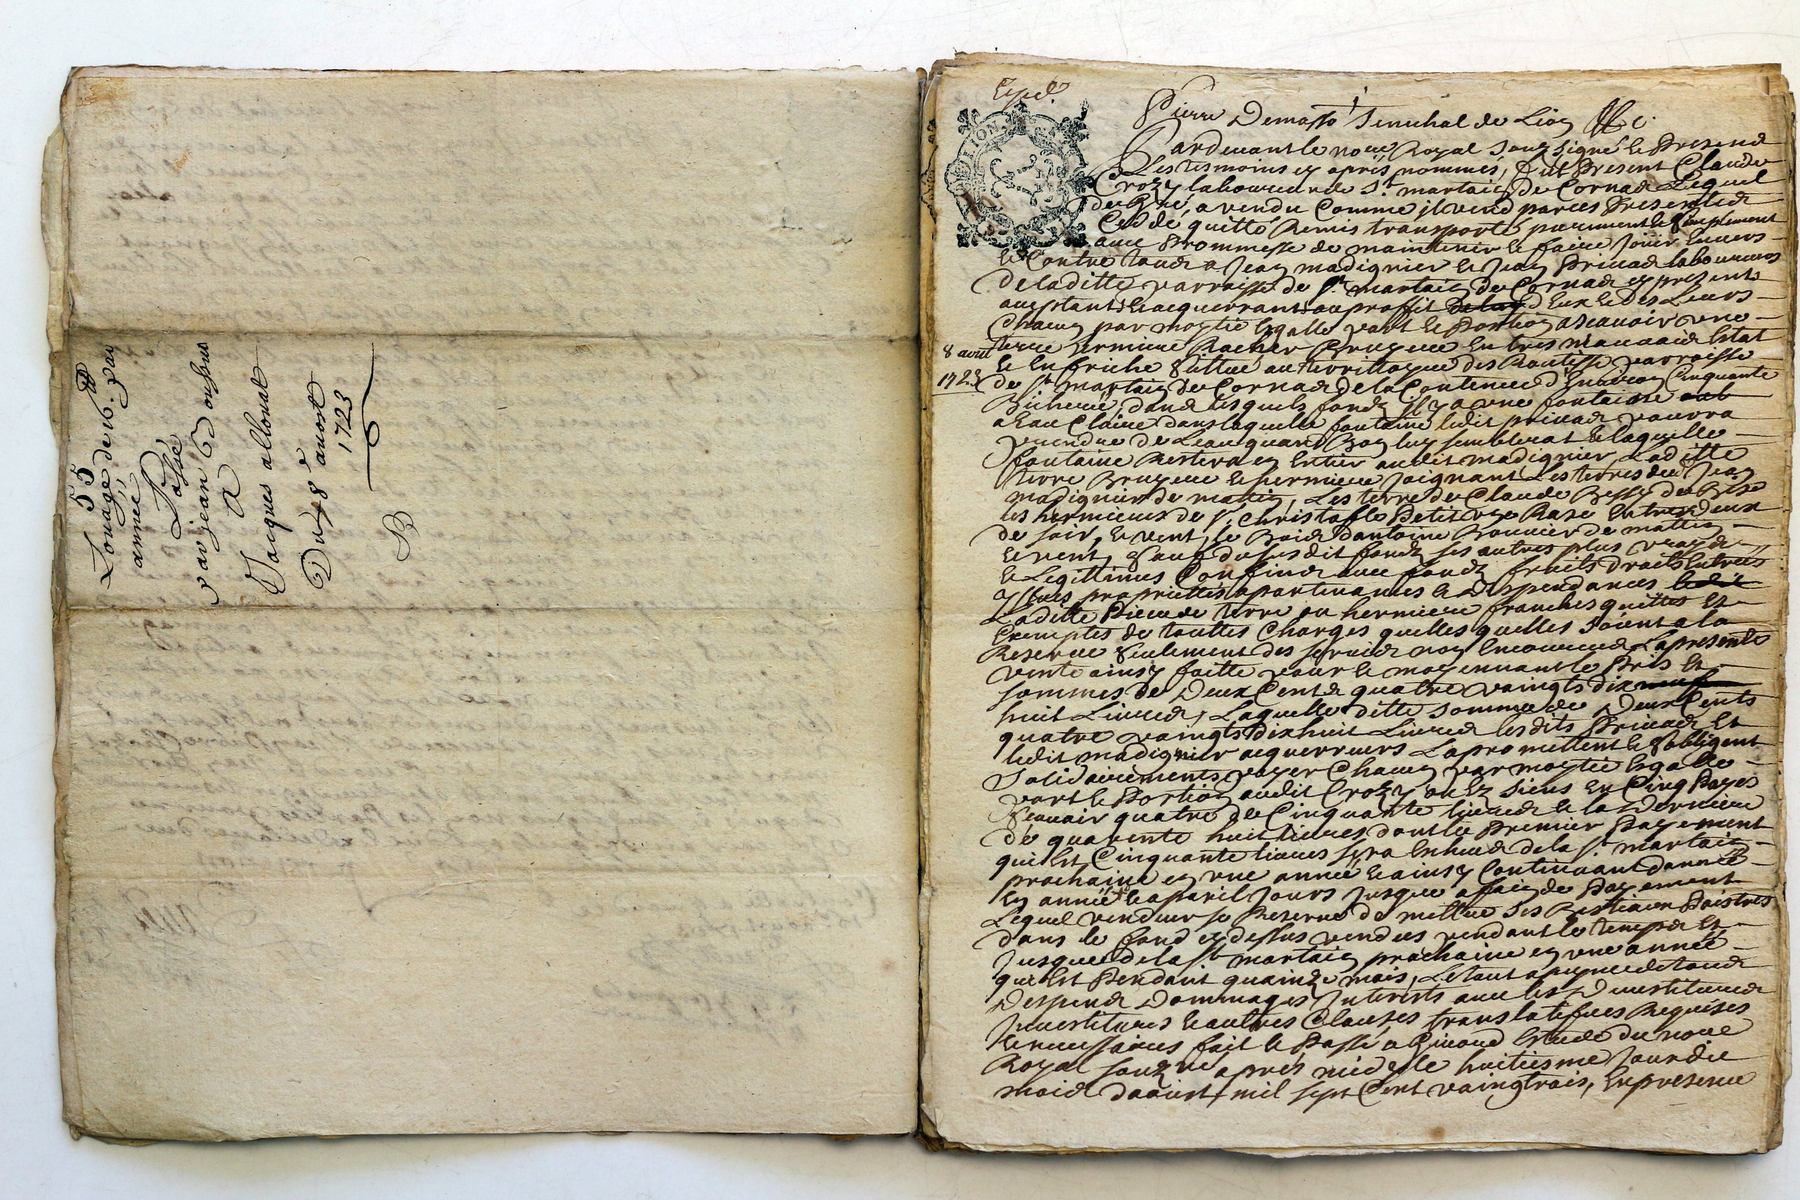 55
Louage de 16. pour
année
Passé
par jean Dousrus
A
Jacques allouat
Du 8e aoust
1723
B
Exped.
G. DE LION.
8 aout
1723
Pierre Demasso Senechal de Lion &c.
Pardevant le noere Royal Souz signé le Present
Les tesmoins cy aprés nommés, fut Present Claude
Crozy laboureur de St. martain de Cornas Lequel
de gré, a vendu Comme il vend par ces Presentes
Ceddé, quitté Remis transporté purement & simplement
avec Prommesse de maintenir & faire Jouir Envers
& Contre tous a Jean madignier & Jean Privas laboureurs
De laditte parroisse de St. martain de Cornas cy present
aceptants & acquerrants au proffit d'Eux & des Leurs
Chacun par moytié Egalle part & Portion a Scavoir une
terre hermiere Rocher Bruyere En tres mauvais Estat
& En friche Situe au territtoire des Rautisse parroisse
de St. martain de Cornas de la Contenue d'Environ Cinquante
Bicherée, dans lesquels fondz Il y a une fontaine
a Eau Claire dans laquelle fontaine ledit privas pourra
prendre de Leau quand Bon luy semblerat & laquelle
fontaine Restera en Entier audit madignier, Laditte
terre Bruyere & hermiere Joignant Les terres dud Jean
madignier de matin, Les terre de Claude Bessy de Bise
les hermieres de St. Christofle Petit une Rase Entre deux
de soir, & vent, le Bois d'antoine Bonnier de mattin
& vent, Sauf du susdit fondz ses autres plus vrays
& Legittimes Confins avec fondz fruits droits Entrées
Yssues proprietes apartenances & Deppendances
Laditte Piece de terre ou hermiere franches quittes Et
Exemptes de touttes Charges quelles quelles Soient a la
Reserve Seulement des servis non Encourus La presente
vente ainsy faitte pour & moyennant le Pris Et
sommes de Deux Cents quatre vaingts dix neuf
huit Livres, Laquelle ditte somme de Deux Cents
quatre vaingts dix huit Livres lesdits Privas Et
ledit madignier acquerreurs La promettent & S'obligent
Solidairements payer Chacun par moytié Egalle
part & Portion audit Crozy ou Ez siens En Cinq Payes
Scavoir quatre de Cinquante livres & la Derniere
de quarente huit livres dont le Premier Payement
qui Est Cinquante livres sera Echeus de la St. martain
prochaine en une année & ainsy Continuant dannée
En année & a pareil Jours Jusque a fain de Payement
Lequel vendeur se Reserve de mettre ses Bestiaux Paistres
dans le fond cy dessus vendus pendant le temps Et
Jusques de la St. martain prochaine en une année
qui Est Pendant quainze mois, Le tout a peyne de tous
Despens Dommages Interêts avec les Devestitures
Investitures & autres Clauses translatifves Requises
& necessaires fait & Passé a Givord Estude du noere
Royal souz né aprés midy le huitiesme Jour du
mois d'aoust mil sept Cent vaingtrois, En presence